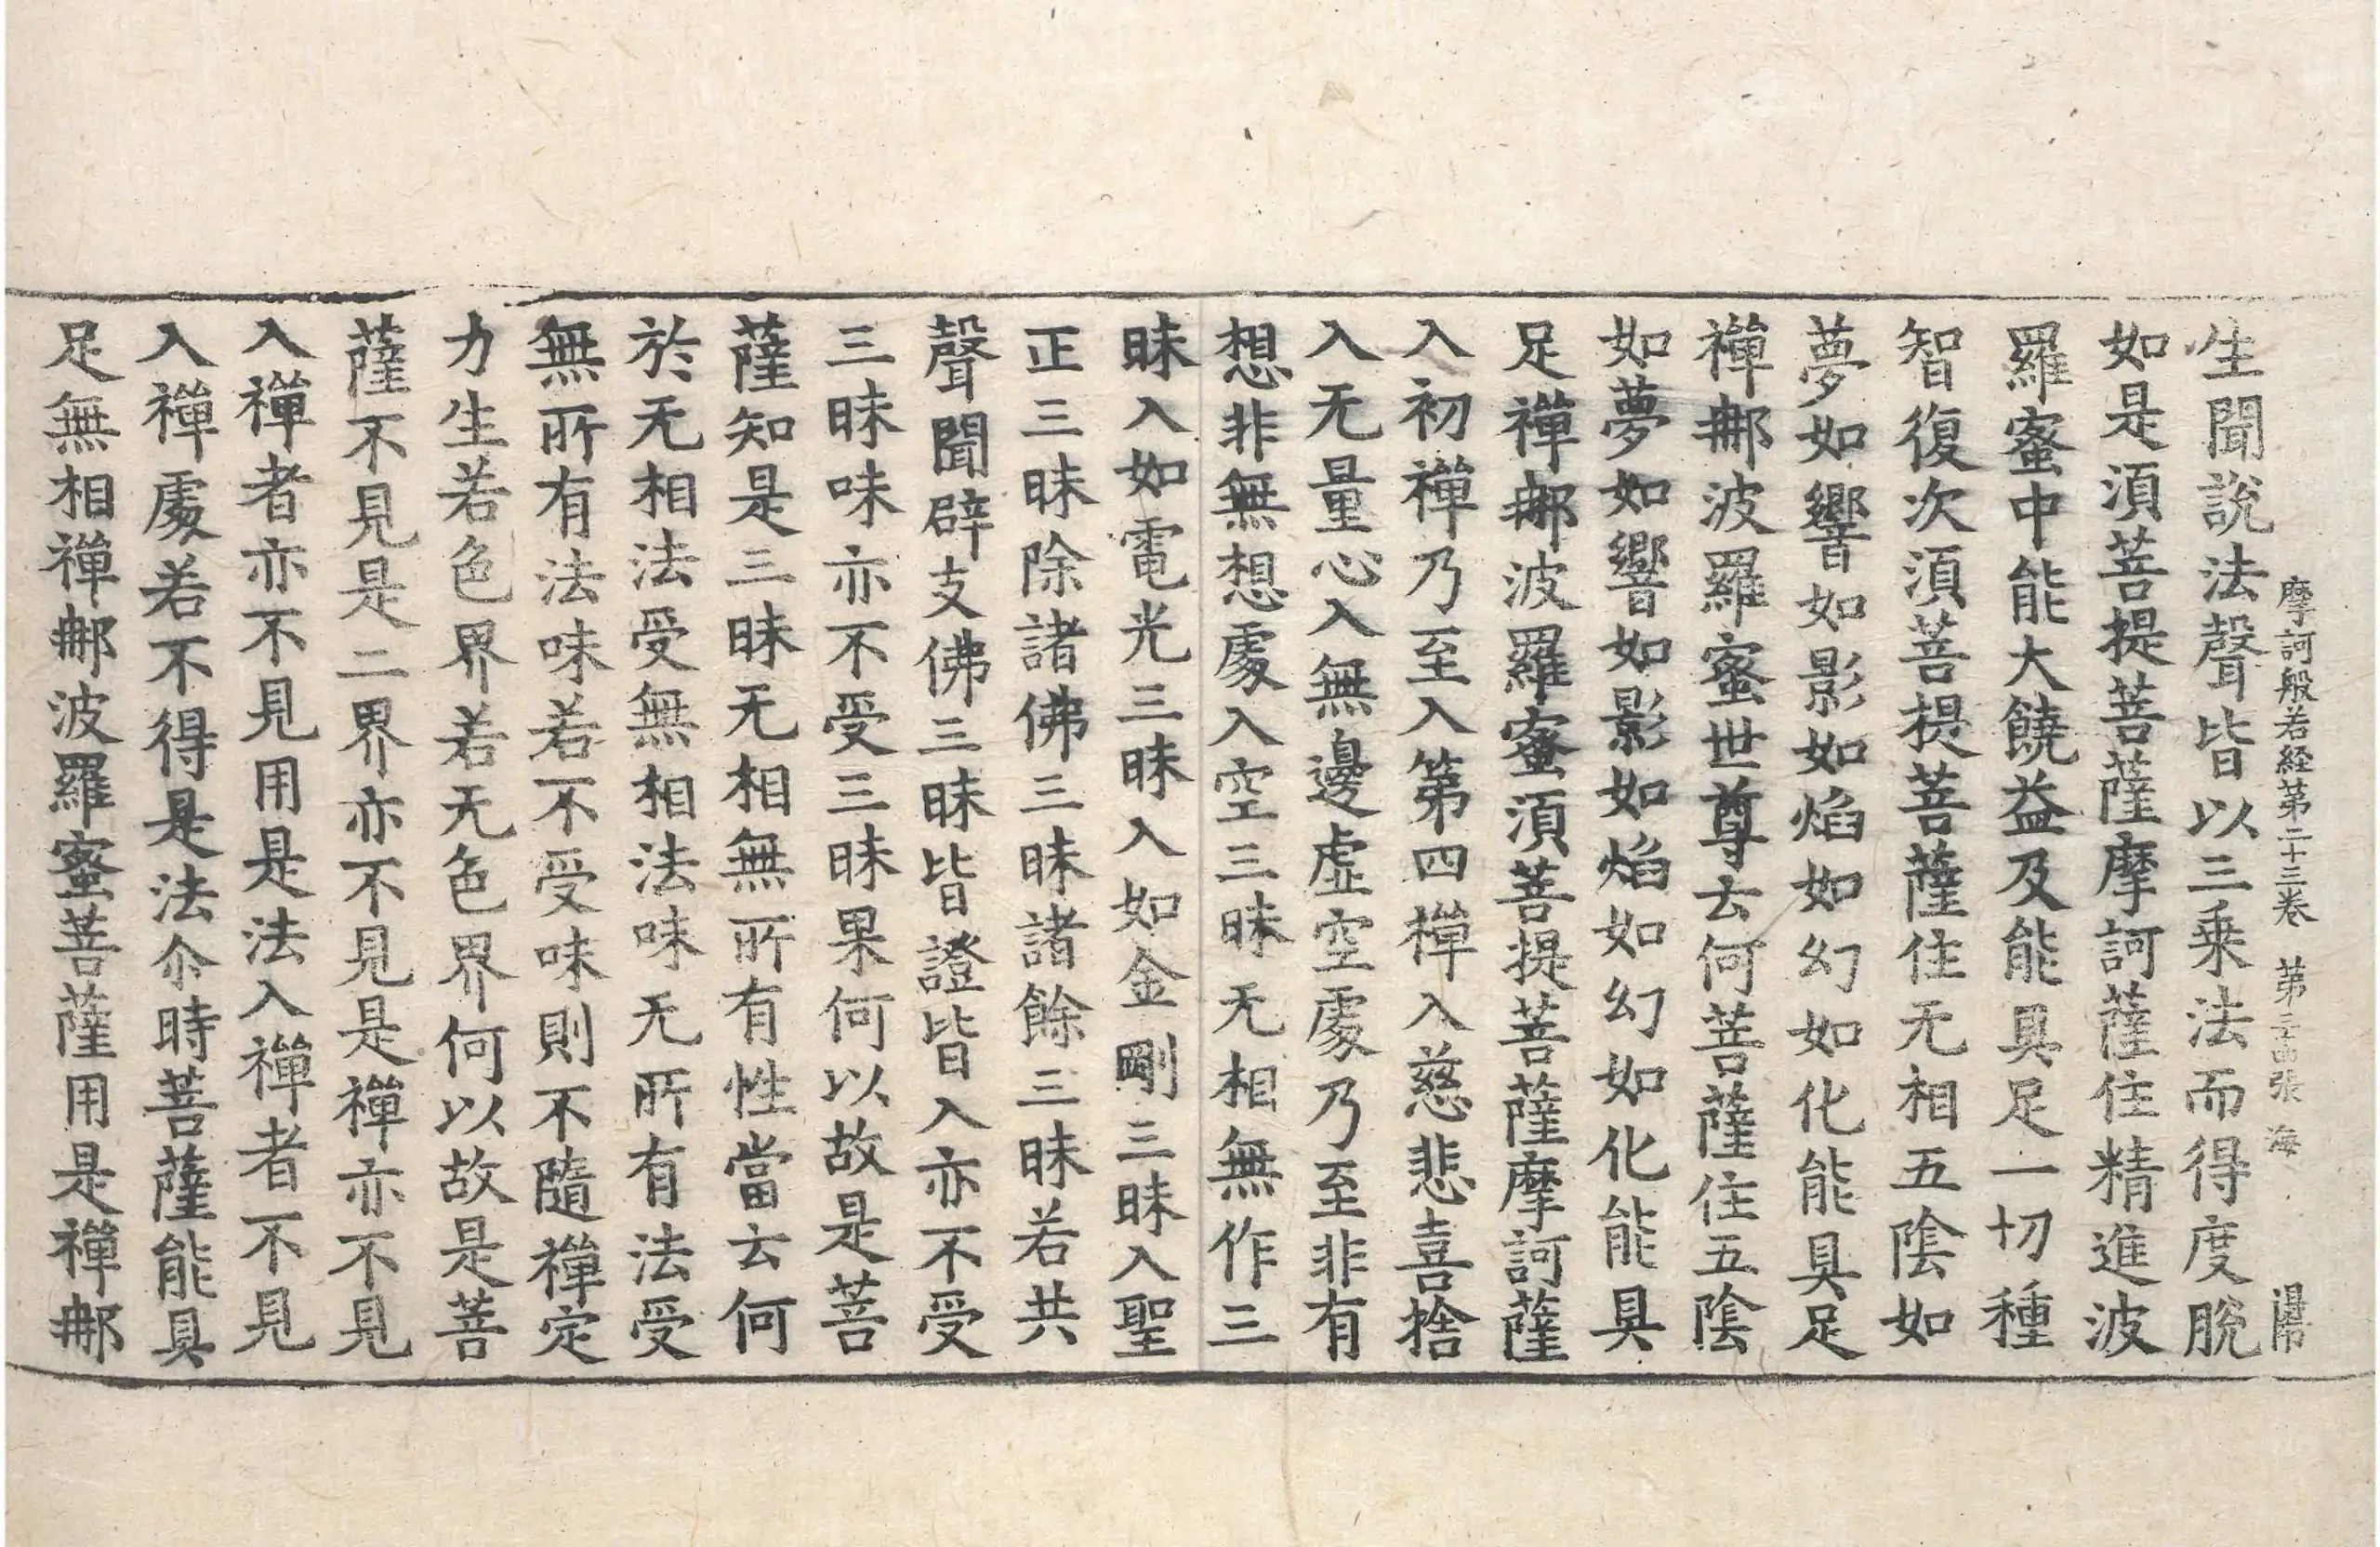 摩訶般若経第二十三巻　第三四張　海
生聞說法聲皆以三乗法而得度脫
如是須菩提菩薩摩訶薩住精進波
羅蜜中能大饒益及能具足一切種
智復次須菩提菩薩住无相五陰如
夢如響如影如焰如幻如化能具足
禪那波羅蜜世尊云何菩薩住五陰
如夢如響如影如焰如幻如化能具
足禪那波羅蜜須菩提菩薩摩訶薩
入初禪乃至入第四禪入慈悲喜捨
入无量心入無邊虛空處乃至非有
想非無想處入空三昧无相無作三
昧入如電光三昧入如金剛三昧入聖
正三昧除諸佛三昧諸餘三昧若共
聲聞辟支佛三昧皆證皆入亦不受
三昧味亦不受三昧果何以故是菩
薩知是三昧无相無所有性當云何
於无相法受無相法味无所有法受
無所有法味若不受味則不隨禪定
力生若色界若无色界何以故是菩
薩不見是二界亦不見是禪亦不見
入禪者亦不見用是法入禪者不見
入禪處若不得是法尒時菩薩能具
足無相禪那波羅蜜菩薩用是禪那